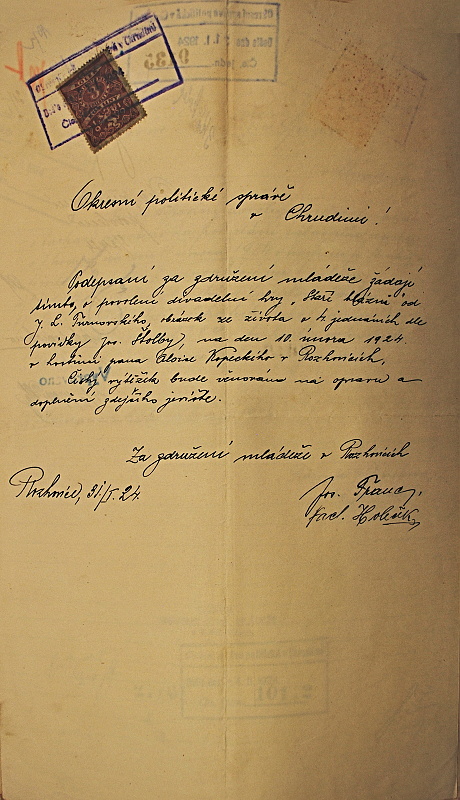 Okresní politické správě
v Chrudimi!
Podepsaní za združení mládeže žádají
tímto, o povolení divadelní hry, Staří blázni od
J. L. Turnovského obrázek ze života v 4 jednáních dle
povídky Jos. Štolby), na den 10. února 1924.
v hostinci pana Aloise Kopeckého v Rozhovicích,
Čistý výtěžek bude věnován na opravu a
doplnění zdejšího jeviště.
Za združení mládeže v Rozhovicích
Rozhovice, 31/I. 24.
Jos. Franc,
Holeček